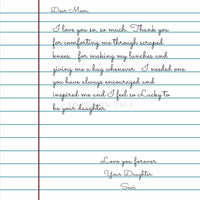 Dear Mom,
I love you so, so much. Thank you
for comforting me through scraped
knees, for making my lunches and
giving me a hug whenever I needed one.
you have always encouraged and
inspired me and I feel so Lucky to
be your daughter.
Love you forever
Your Daughter